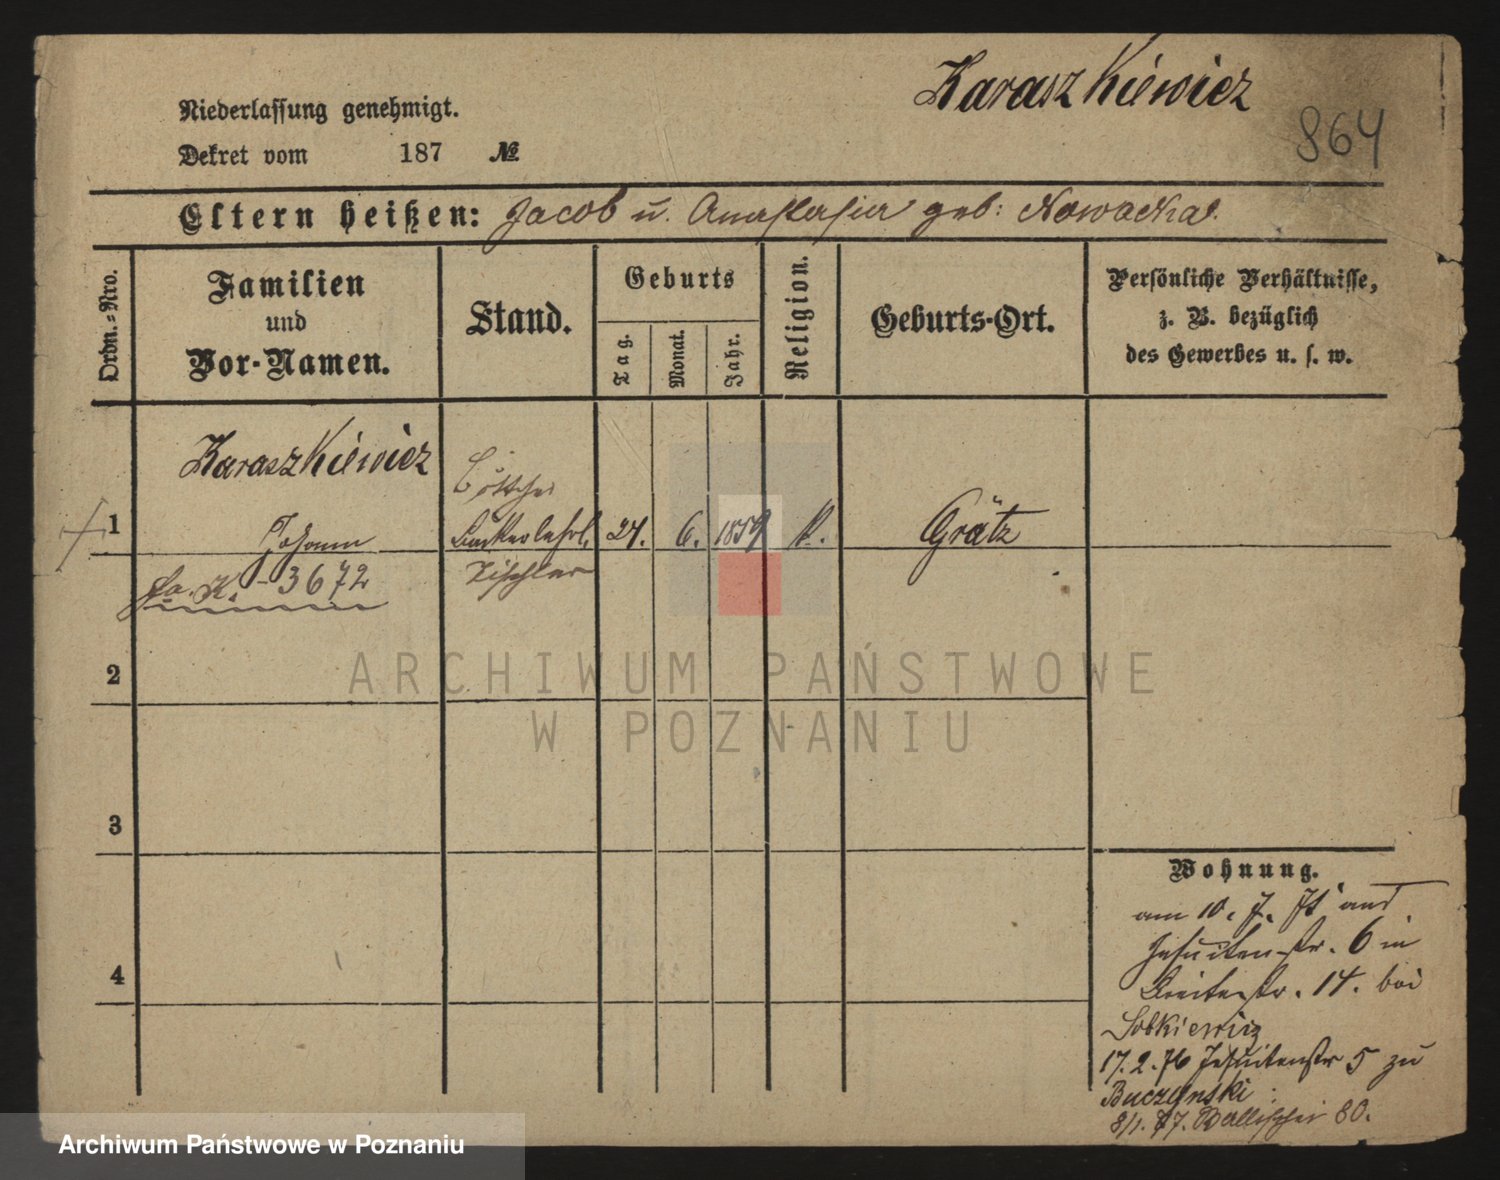 Karaszkiewicz
864
Niederlassung genehmigt.
Dekret vom 187 №
Eltern heißen: Jacob u. Anastasia geb: Nowacka.
Ordn.-Nro.
Familien
und
Vor-Namen.
Stand.
Geburts
Tag.
Monat.
Jahr.
Religion.
Geburts-Ort.
Persönliche Verhältnisse,
z. B. bezüglich
des Gewerbes u. s. w.
Karaszkiewicz
Böttcher
1 Johann Bäckerlehrl. 24. 6. 1859 k. Grätz
K. - 3672 Tischler
2
3
4
Wohnung.
am 10. 7. 75
Jesuitenstr. 6 in
Breitestr. 14. bei
Sobkiewicz
17.2.76 Jesuitenstr 5 zu
Buczynski
8/1. 77. Wallischei 80.
ARCHIWUM PAŃSTWOWE
W POZNANIU
Archiwum Państwowe w Poznaniu